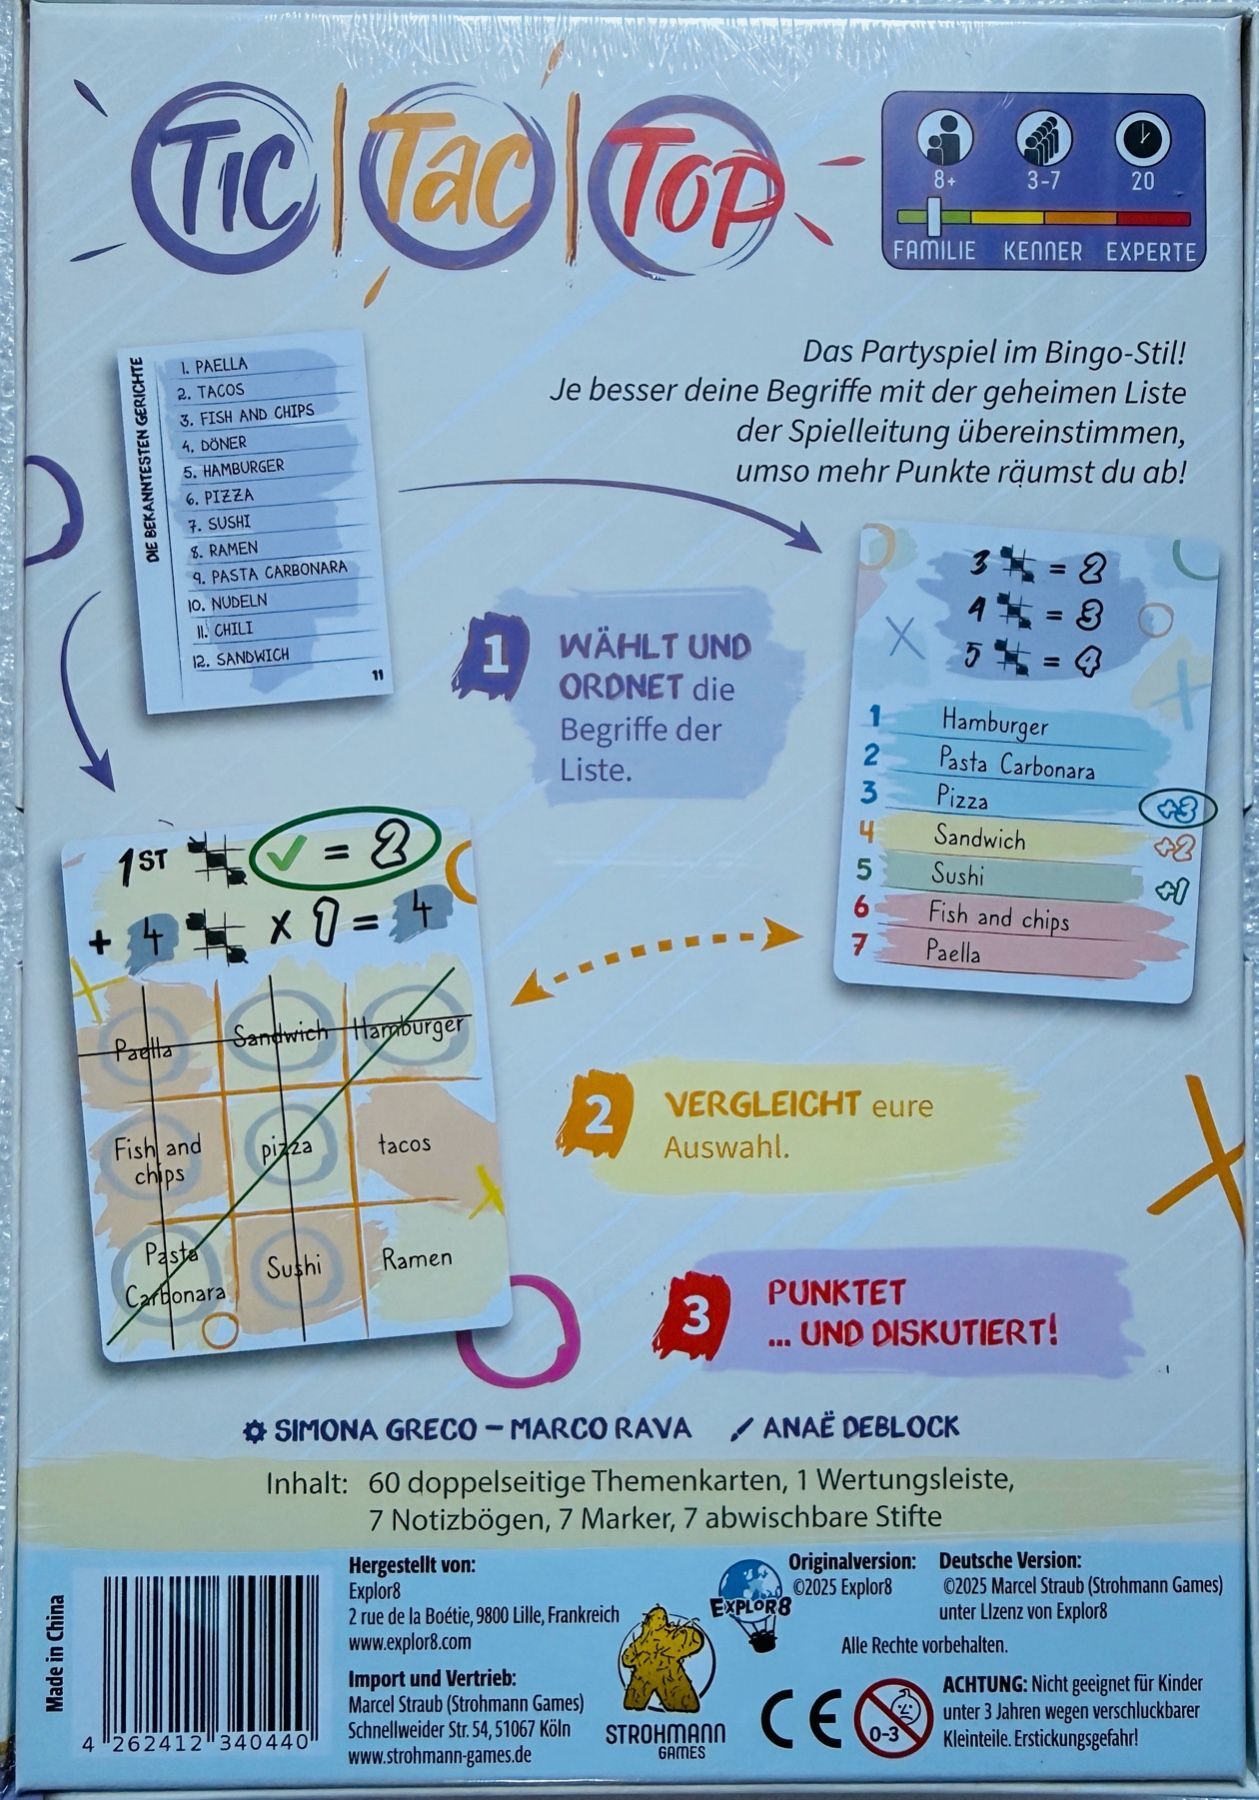 TIC TAC TOP
8+ 3-7 20
FAMILIE KENNER EXPERTE
Das Partyspiel im Bingo-Stil!
Je besser deine Begriffe mit der geheimen Liste
der Spielleitung übereinstimmen,
umso mehr Punkte räumst du ab!
DIE BEKANNTESTEN GERICHTE
1. PAELLA
2. TACOS
3. FISH AND CHIPS
4. DÖNER
5. HAMBURGER
6. PIZZA
7. SUSHI
8. RAMEN
9. PASTA CARBONARA
10. NUDELN
11. CHILI
12. SANDWICH
11
1 WÄHLT UND
ORDNET die
Begriffe der
Liste.
3 = 2
4 = 3
5 = 4
1 Hamburger
2 Pasta Carbonara
3 Pizza +3
4 Sandwich +2
5 Sushi +1
6 Fish and chips
7 Paella
1ST ✓ = 2
+ 4 x 1 = 4
Paella Sandwich Hamburger
Fish and
chips
pizza
tacos
Pasta
Carbonara
Sushi
Ramen
2 VERGLEICHT eure
Auswahl.
3 PUNKTET
... UND DISKUTIERT!
SIMONA GRECO – MARCO RAVA ANAË DEBLOCK
Inhalt: 60 doppelseitige Themenkarten, 1 Wertungsleiste,
7 Notizbögen, 7 Marker, 7 abwischbare Stifte
Made in China
4 262412 340440
Hergestellt von:
Explor8
2 rue de la Boétie, 9800 Lille, Frankreich
www.explor8.com
Import und Vertrieb:
Marcel Straub (Strohmann Games)
Schnellweider Str. 54, 51067 Köln
www.strohmann-games.de
EXPLOR8
STROHMANN
GAMES
Originalversion:
©2025 Explor8
Deutsche Version:
©2025 Marcel Straub (Strohmann Games)
unter LIzenz von Explor8
Alle Rechte vorbehalten.
CE
0-3
ACHTUNG: Nicht geeignet für Kinder
unter 3 Jahren wegen verschluckbarer
Kleinteile. Erstickungsgefahr!